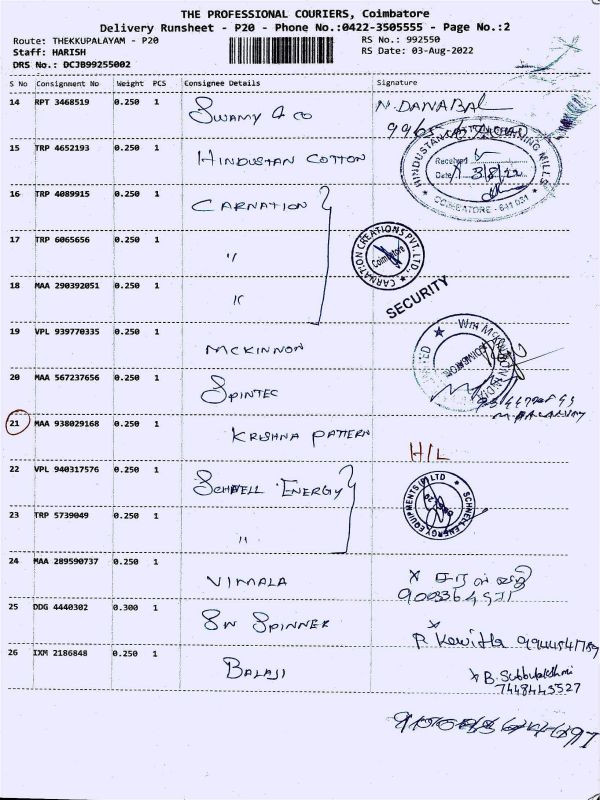 THE PROFESSIONAL COURIERS, Coimbatore
Delivery Runsheet - P20 - Phone No.:0422-3505555 - Page No.:2
Route: THEKKUPALAYAM - P20
RS No.: 992550
Staff: HARISH
RS Date: 03-Aug-2022
DRS No.: DCJB99255002
S No Consignment No Weight PCS Consignee Details Signature
14 RPT 3468519 0.250 1 SWAMY & CO N. DANABAL
15 TRP 4652193 0.250 1 HINDUSTAN COTTON
Received
Date 3/8/22
COIMBATORE - 641 031
16 TRP 4089915 0.250 1 CARNATION
17 TRP 6065656 0.250 1 "
CARNATION CREATIONS PVT. LTD.
Coimbatore
18 MAA 290392051 0.250 1 "
SECURITY
19 VPL 939770335 0.250 1 MCKINNON
COIMBATORE
20 MAA 567237656 0.250 1 SPINTEC
21 MAA 938029168 0.250 1 KRISHNA PATTERN
H/L
22 VPL 940317576 0.250 1 SCHNELL ENERGY
SCHNELL ENERGY EQUIPMENTS (P) LTD
23 TRP 5739049 0.250 1 "
24 MAA 289590737 0.250 1 VIMALA
25 DDG 4440302 0.300 1 SN SPINNER
P. Kavitha
26 IXM 2186848 0.250 1 BALAJI
B. Subbulakshmi
7448443527